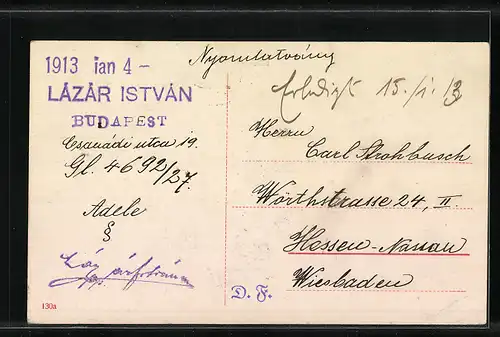 1913 ian 4 –
LÁZÁR ISTVÁN
BUDAPEST
Csanádi utca 19.
Gl. 4692/27
Adele
§
Nyomtatvány
Erledigt 15./1. 13
Herrn
Carl Strohbusch
Wörthstrasse 24, II
Hessen-Nassau
Wiesbaden
D. F.
130a